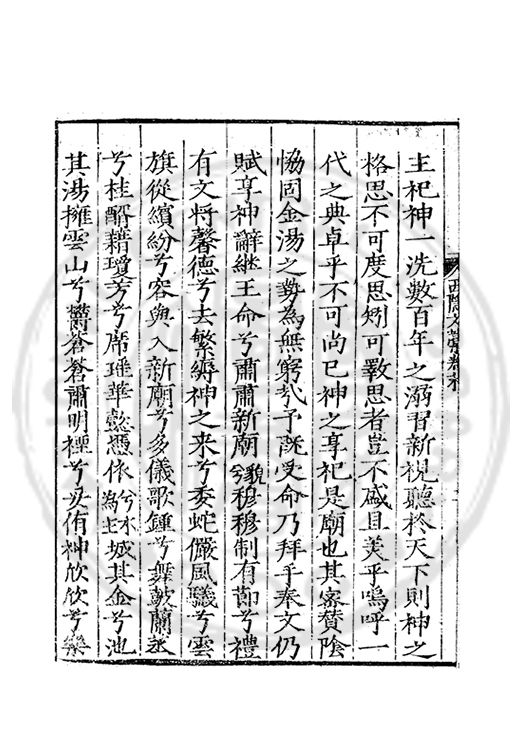 主祀神一洗數百年之溺習新視聽於天下則神之
格思不可度思矧可斁思者豈不盛且美乎嗚呼一
代之典卓乎不可尚已神之享祀是廟也其密贊陰
恊固金湯之勢為無窮哉予既受命乃拜手奉文仍
賦享神辭繼王命兮肅肅新廟兮貌穆穆制有節兮禮
有文將馨德兮去繁縟神之来兮委蛇儼風驥兮雲
旗從繽紛兮容與入新廟兮多儀歌鍾兮舞鼓蘭烝
兮桂酳藉瓊芳兮席瑶華懿憑依兮木為主城其金兮池
其湯擁雲山兮欝蒼蒼肅明禋兮妥侑神欣欣兮樂